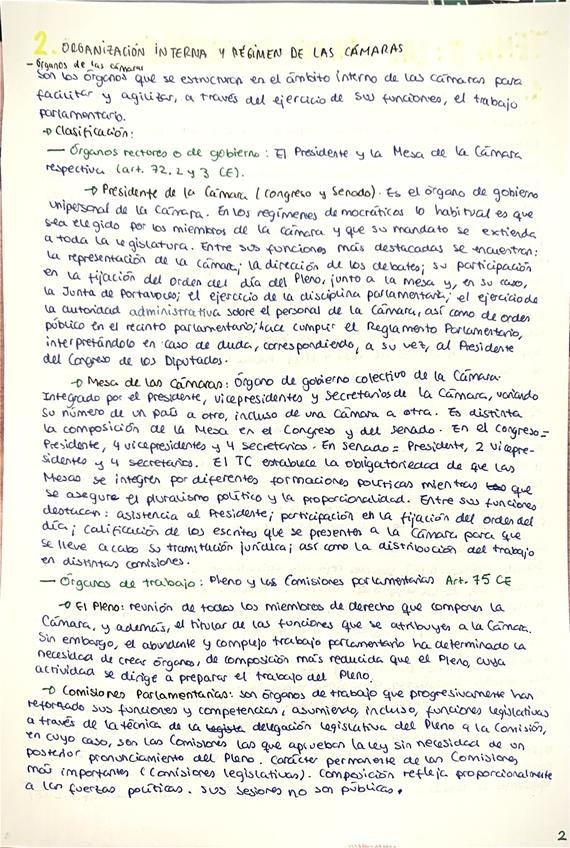 2. ORGANIZACIÓN INTERNA Y RÉGIMEN DE LAS CÁMARAS
- Órganos de las cámaras
Son los órganos que se estructuran en el ámbito interno de las cámaras para
facilitar y agilizar, a través del ejercicio de sus funciones, el trabajo
parlamentario.
→ Clasificación:
— Órganos rectores o de gobierno: El Presidente y la Mesa de la Cámara
respectiva (art. 72.2 y 3 CE).
→ Presidente de la Cámara (Congreso y Senado). Es el órgano de gobierno
unipersonal de la Cámara. En los regímenes democráticos lo habitual es que
sea elegido por los miembros de la cámara y que su mandato se extienda
a toda la legislatura. Entre sus funciones más destacadas se encuentran:
la representación de la Cámara; la dirección de los debates; su participación
en la fijación del orden del día del Pleno, junto a la mesa y, en su caso,
la Junta de Portavoces; el ejercicio de la disciplina parlamentaria; el ejercicio de
la autoridad administrativa sobre el personal de la Cámara, así como de orden
público en el recinto parlamentario; hace cumplir el Reglamento Parlamentario,
interpretándolo en caso de duda, correspondiendo, a su vez, al Presidente
del Congreso de los Diputados.
→ Mesa de las Cámaras: Órgano de gobierno colectivo de la Cámara.
Integrado por el Presidente, vicepresidentes y secretarios de la Cámara, variando
su número de un país a otro, incluso de una Cámara a otra. Es distinta
la composición de la Mesa en el Congreso y del Senado. En el congreso =
Presidente, 4 vicepresidentes y 4 secretarios. En Senado = Presidente, 2 vicepre-
sidentes y 4 secretarios. El TC establece la obligatoriedad de que las
Mesas se integren por diferentes formaciones políticas mientras que
se asegure el pluralismo político y la proporcionalidad. Entre sus funciones
destacan: asistencia al Presidente; participación en la fijación del orden del
día; calificación de los escritos que se presenten a la Cámara para que
se lleve a cabo su tramitación jurídica; así como la distribución del trabajo
en distintas comisiones.
— Órganos de trabajo: Pleno y las Comisiones parlamentarias Art. 75 CE
→ El Pleno: reunión de todos los miembros de derecho que componen la
Cámara, y además, el titular de las funciones que se atribuyen a la Cámara.
Sin embargo, el abundante y complejo trabajo parlamentario ha determinado la
necesidad de crear órganos, de composición más reducida que el Pleno, cuya
actividad se dirige a preparar el trabajo del Pleno.
→ Comisiones Parlamentarias: son órganos de trabajo que progresivamente han
reforzado sus funciones y competencias, asumiendo, incluso, funciones legislativas
a través de la técnica de la delegación legislativa del Pleno a la Comisión,
en cuyo caso, son las Comisiones las que aprueban la ley sin necesidad de un
posterior pronunciamiento del Pleno. Carácter permanente de las Comisiones
más importantes (Comisiones legislativas). Composición refleja proporcionalmente
a las fuerzas políticas. Sus sesiones no son públicas.
2